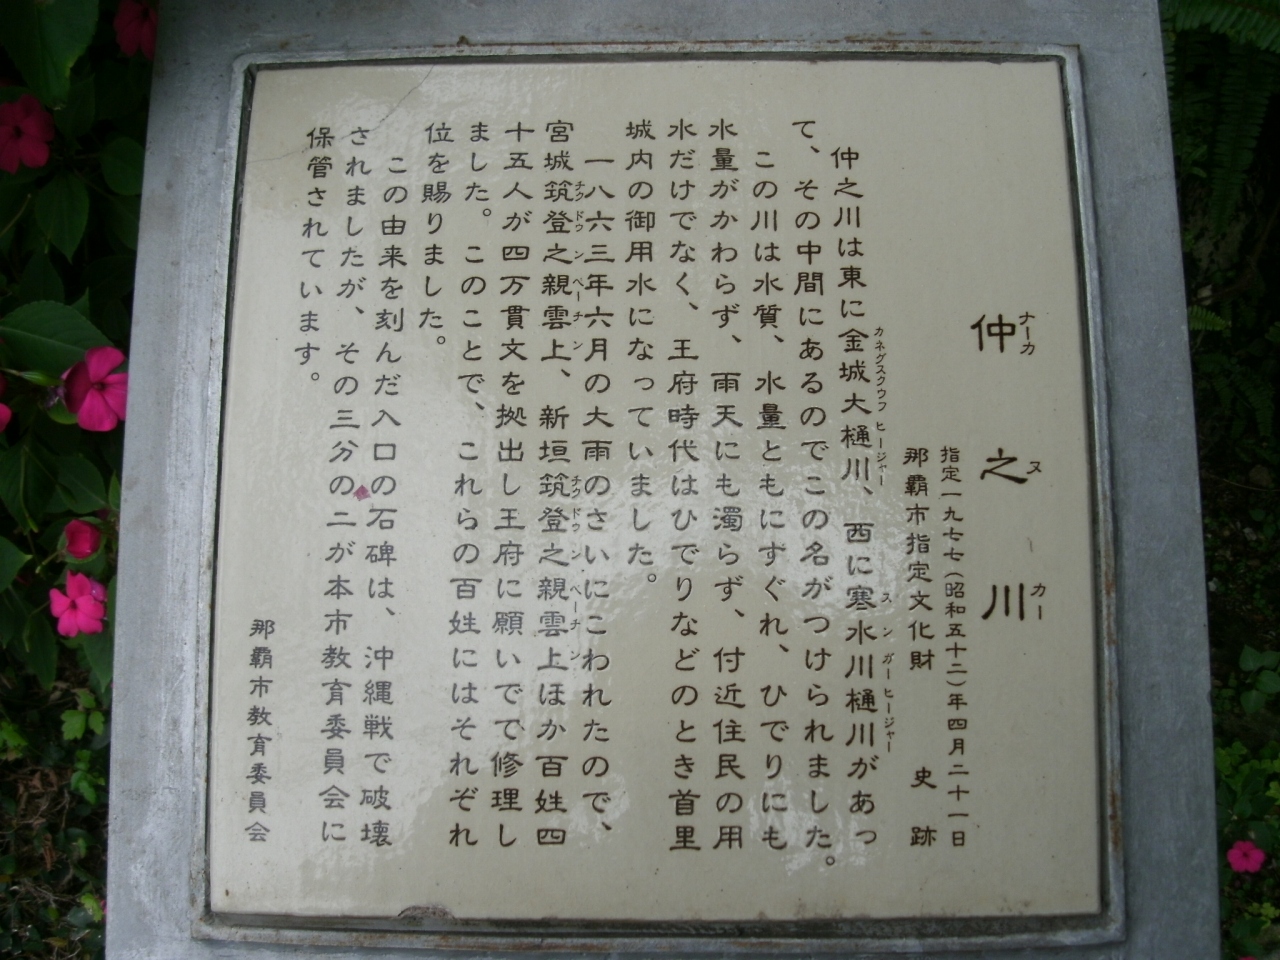 仲之川
ナーカ ヌ カー
指定一九七七(昭和五十二)年四月二十一日
那覇市指定文化財 史跡
仲之川は東に金城大樋川、西に寒水川樋川があっ
カネグスクウフヒージャー スンガーヒージャー
て、その中間にあるのでこの名がつけられました。
この川は水質、水量ともにすぐれ、ひでりにも
水量がかわらず、雨天にも濁らず、付近住民の用
水だけでなく、王府時代はひでりなどのとき首里
城内の御用水になっていました。
一八六三年六月の大雨のさいにこわれたので、
宮城筑登之親雲上、新垣筑登之親雲上ほか百姓四
チクドゥンペーチン チクドゥンペーチン
十五人が四万貫文を拠出し王府に願いでて修理し
ました。このことで、これらの百姓にはそれぞれ
位を賜りました。
この由来を刻んだ入口の石碑は、沖縄戦で破壊
されましたが、その三分の二が本市教育委員会に
保管されています。
那覇市教育委員会